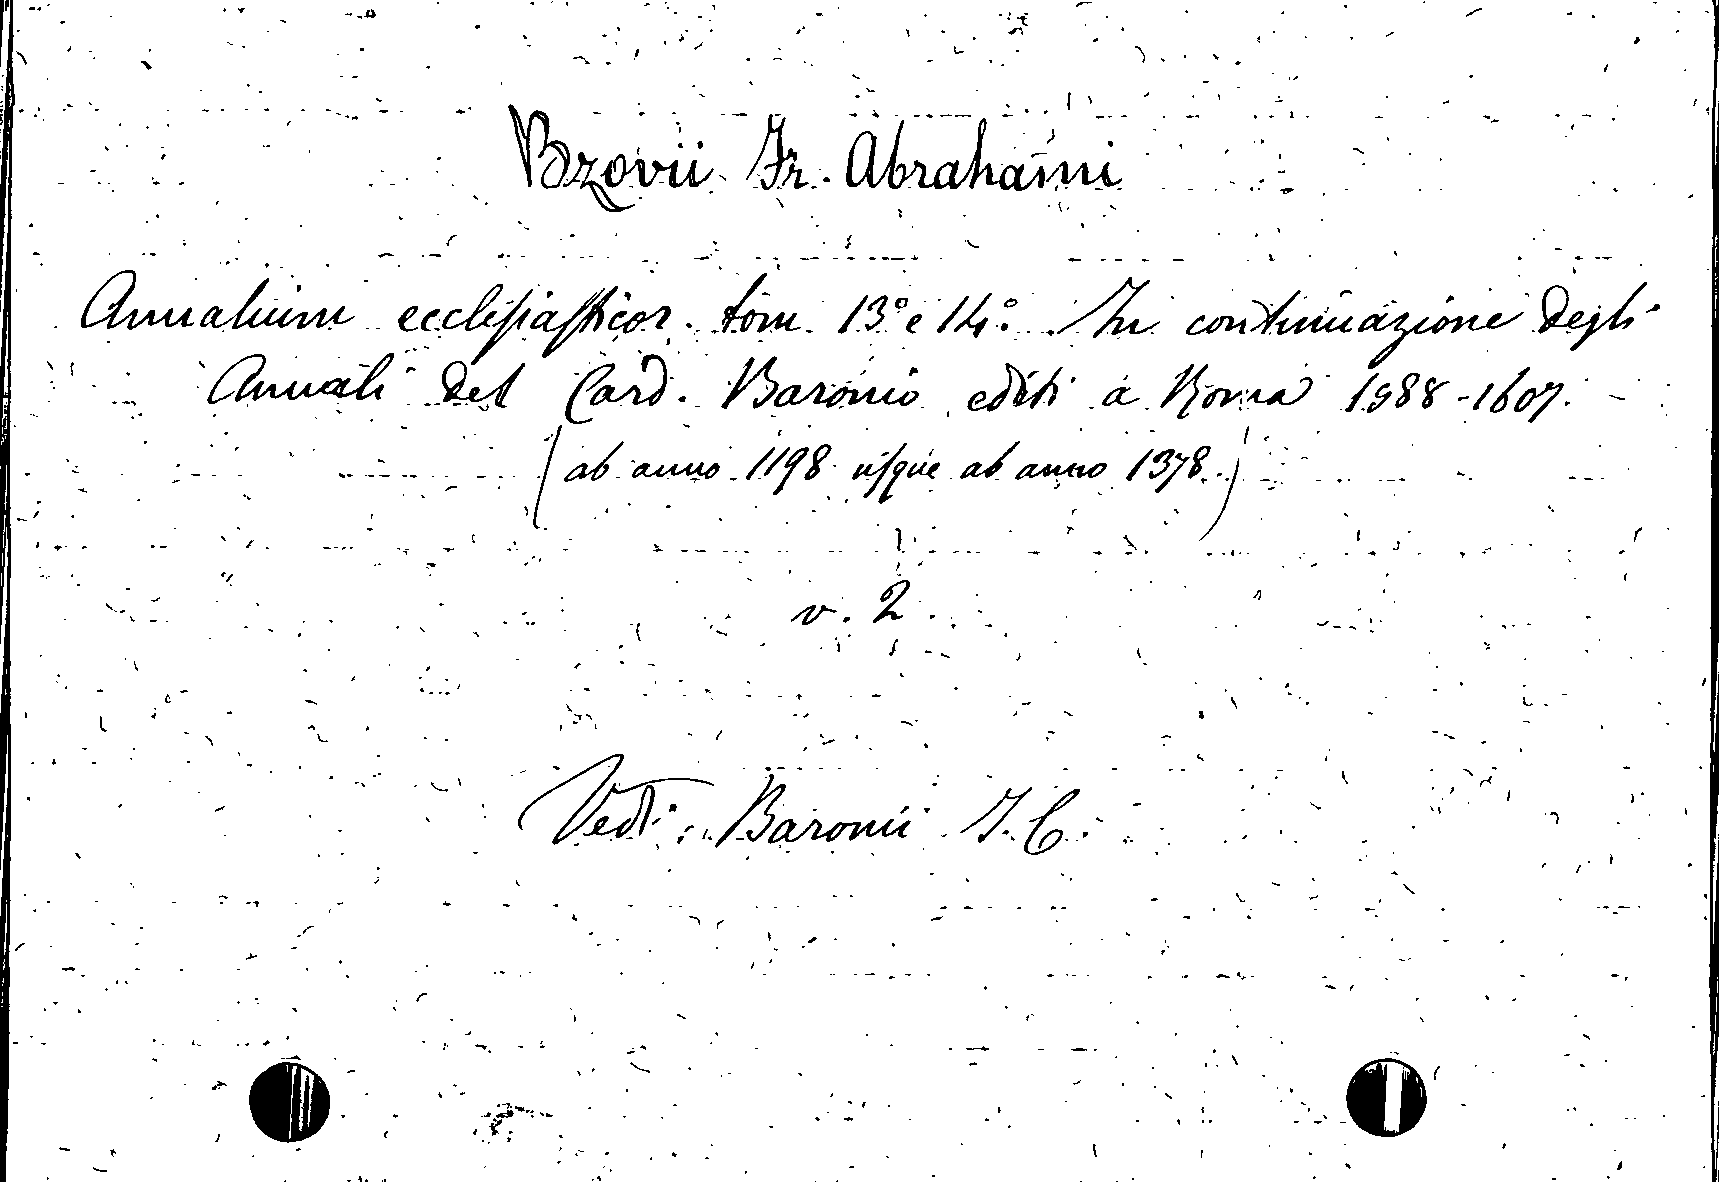 Bzovii Fr. Abrahami
Annalium ecclesiasticor. tom. 13° e 14°. In continuazione degli
Annali del Card. Baronio editi a Roma 1588-1607.
(ab anno 1198 usque ab anno 1378.)
v. 2.
Vedi: Baronii I. C.